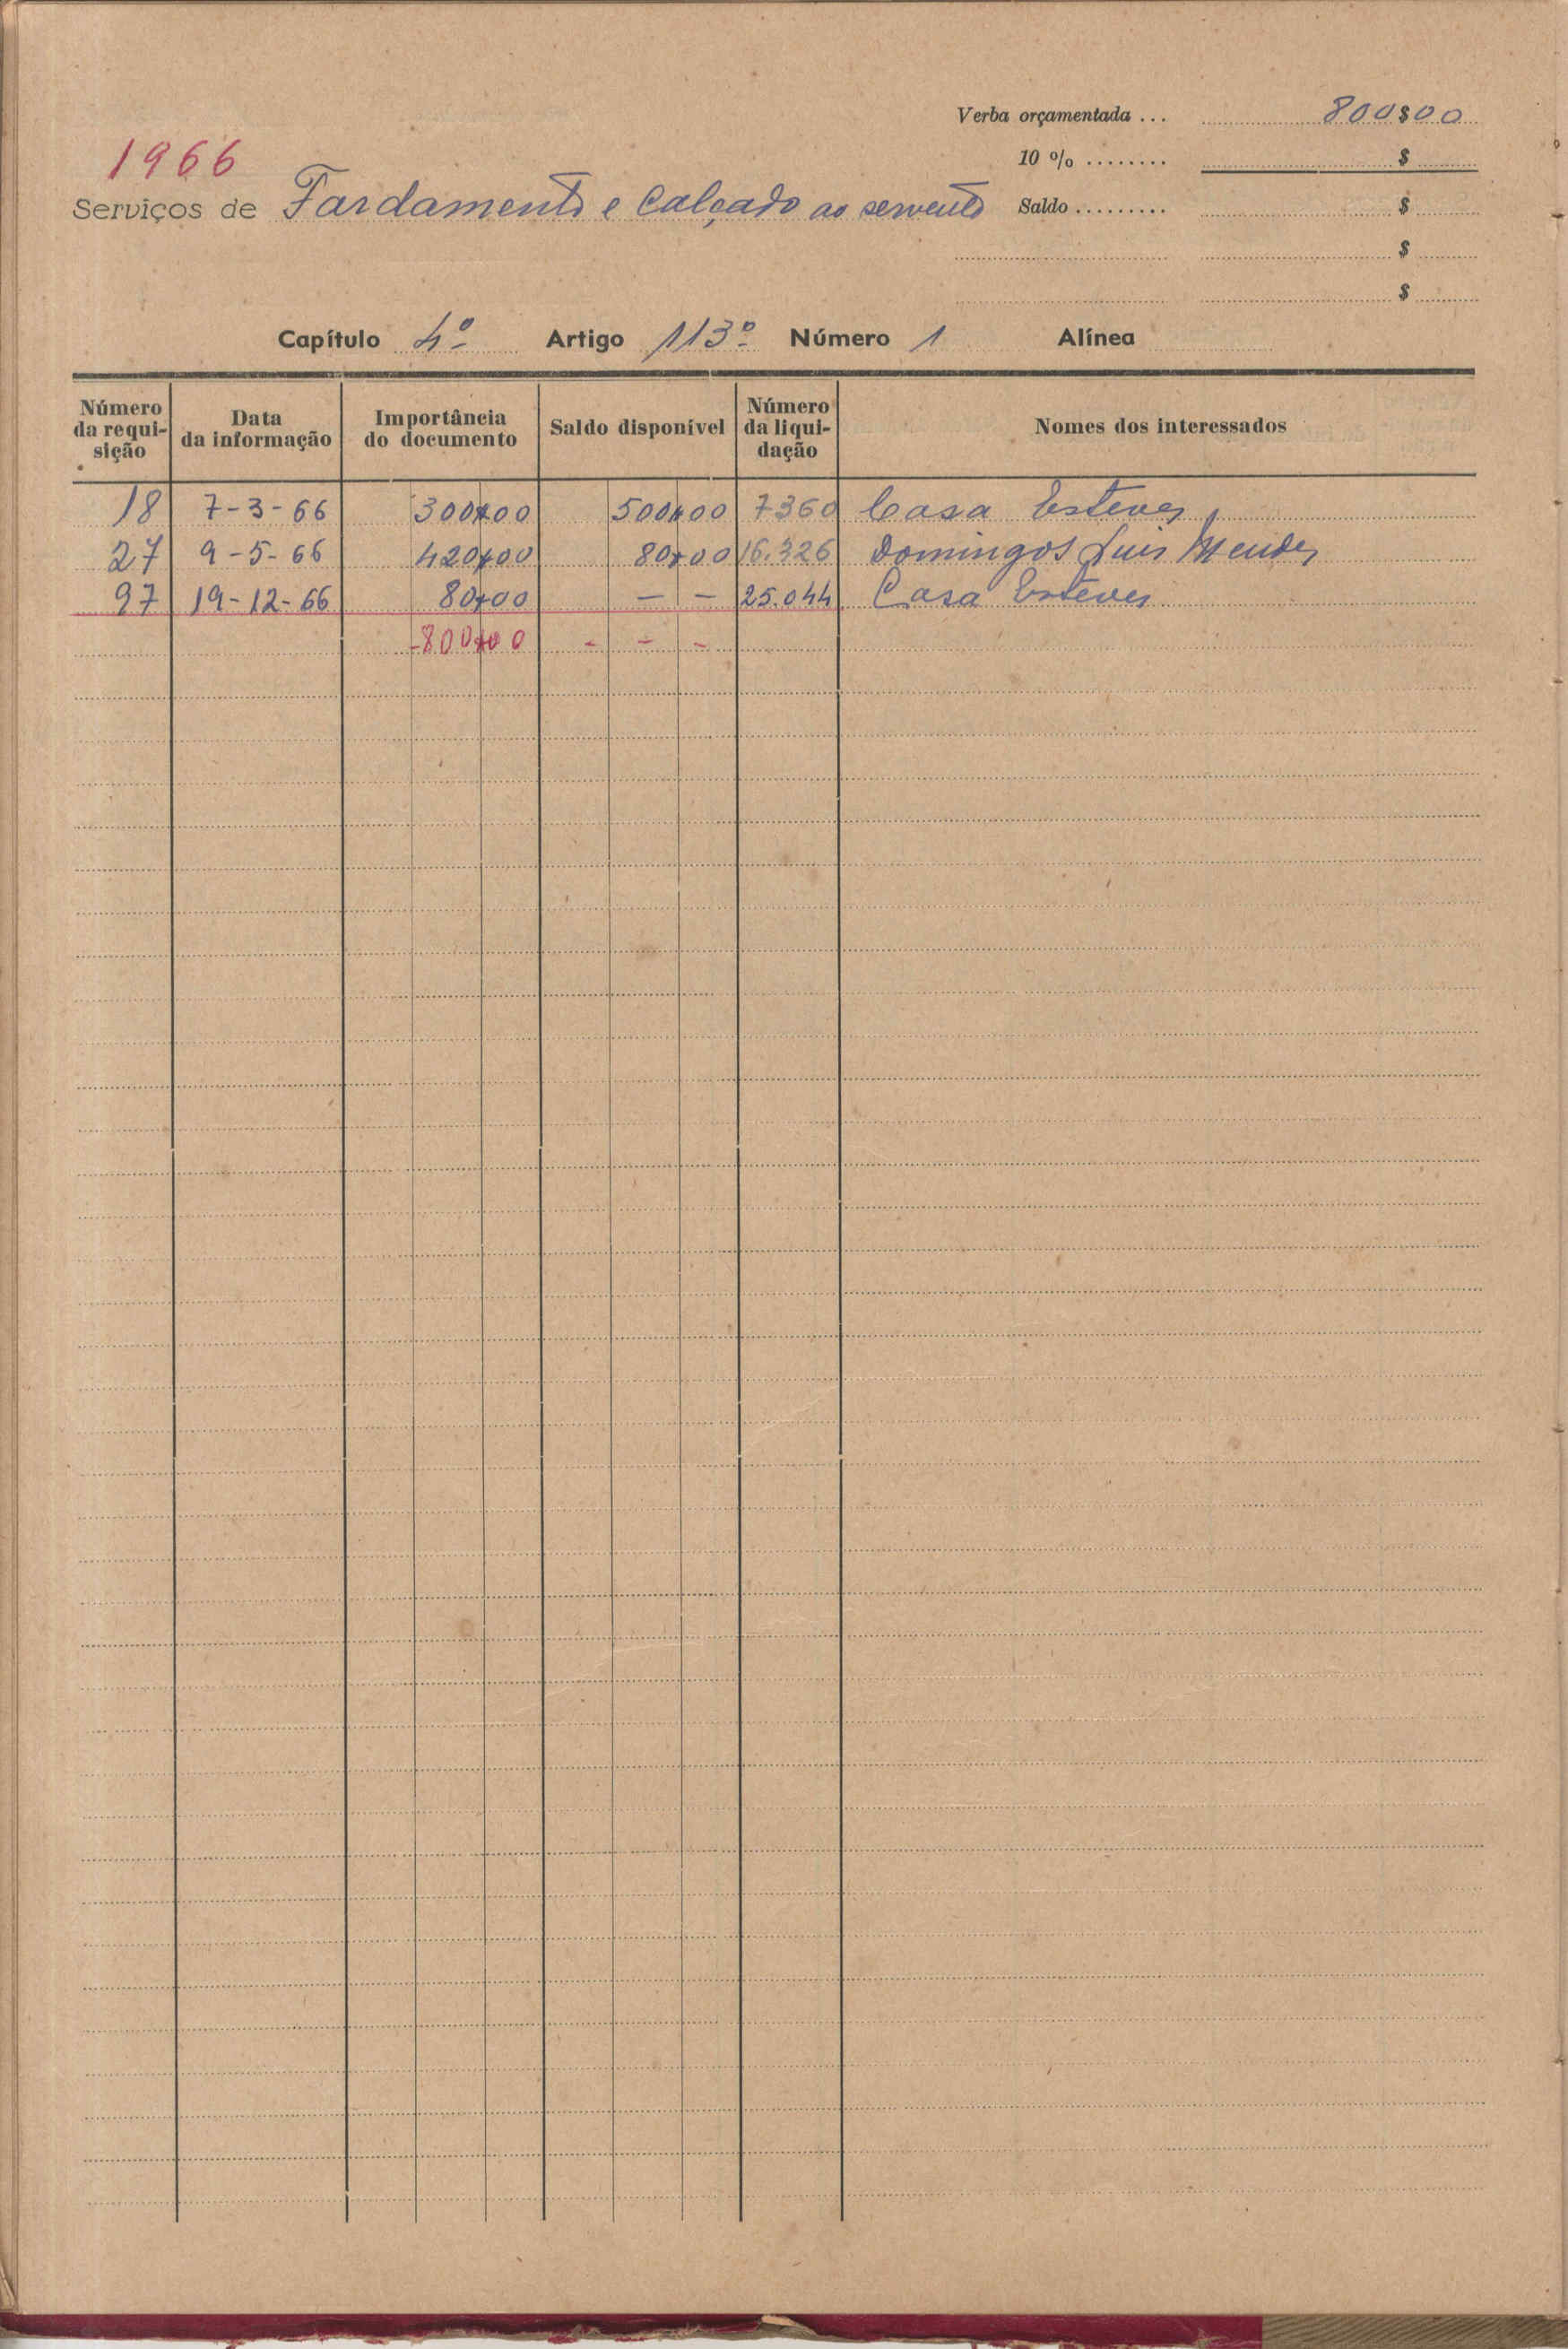 Verba orçamentada ... 800$00
1966
10 % ........ $
Serviços de Fardamento e Calçado ao servente Saldo ......... $
$
$
Capítulo 4º Artigo 113º Número 1 Alínea
Número da requisição Data da informação Importância do documento Saldo disponível Número da liquidação Nomes dos interessados
18 7-3-66 300$00 500$00 7360 Casa Esteves
27 9-5-66 420$00 80$00 16.326 Domingos Luis Mendes
97 19-12-66 80$00 — — 25.044 Casa Esteves
-800$00 - - -